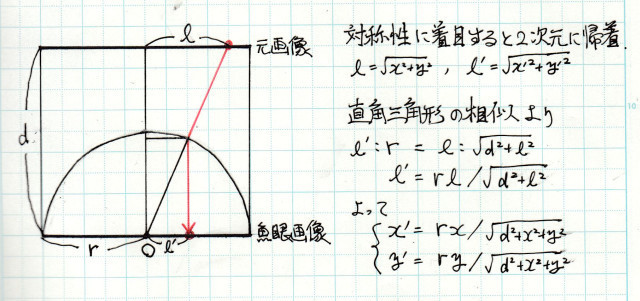 l
元画像
d
魚眼画像
r
O
l'
対称性に着目すると2次元に帰着.
l=√x²+y² , l'=√x'²+y'²
直角三角形の相似より
l':r = l:√d²+l²
l' = rl/√d²+l²
よって
{ x' = rx/√d²+x²+y²
y' = ry/√d²+x²+y²
10